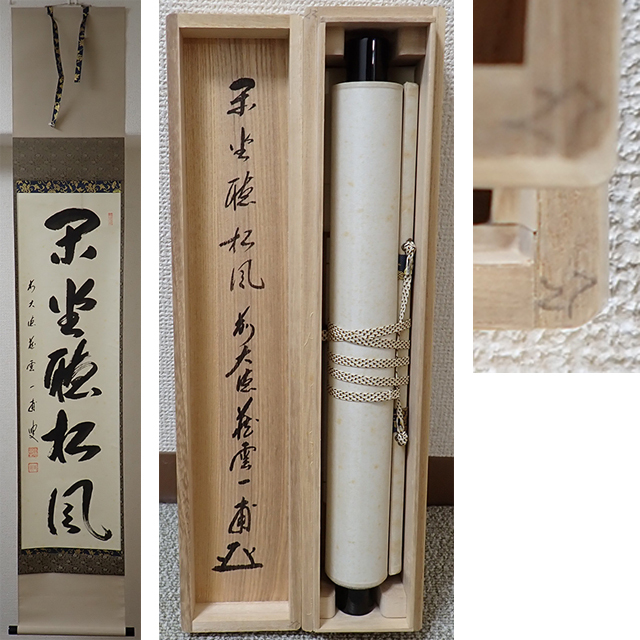 閑坐聴松風
前大徳藏雲一甫叟
閑坐聴松風 前大徳藏雲一甫